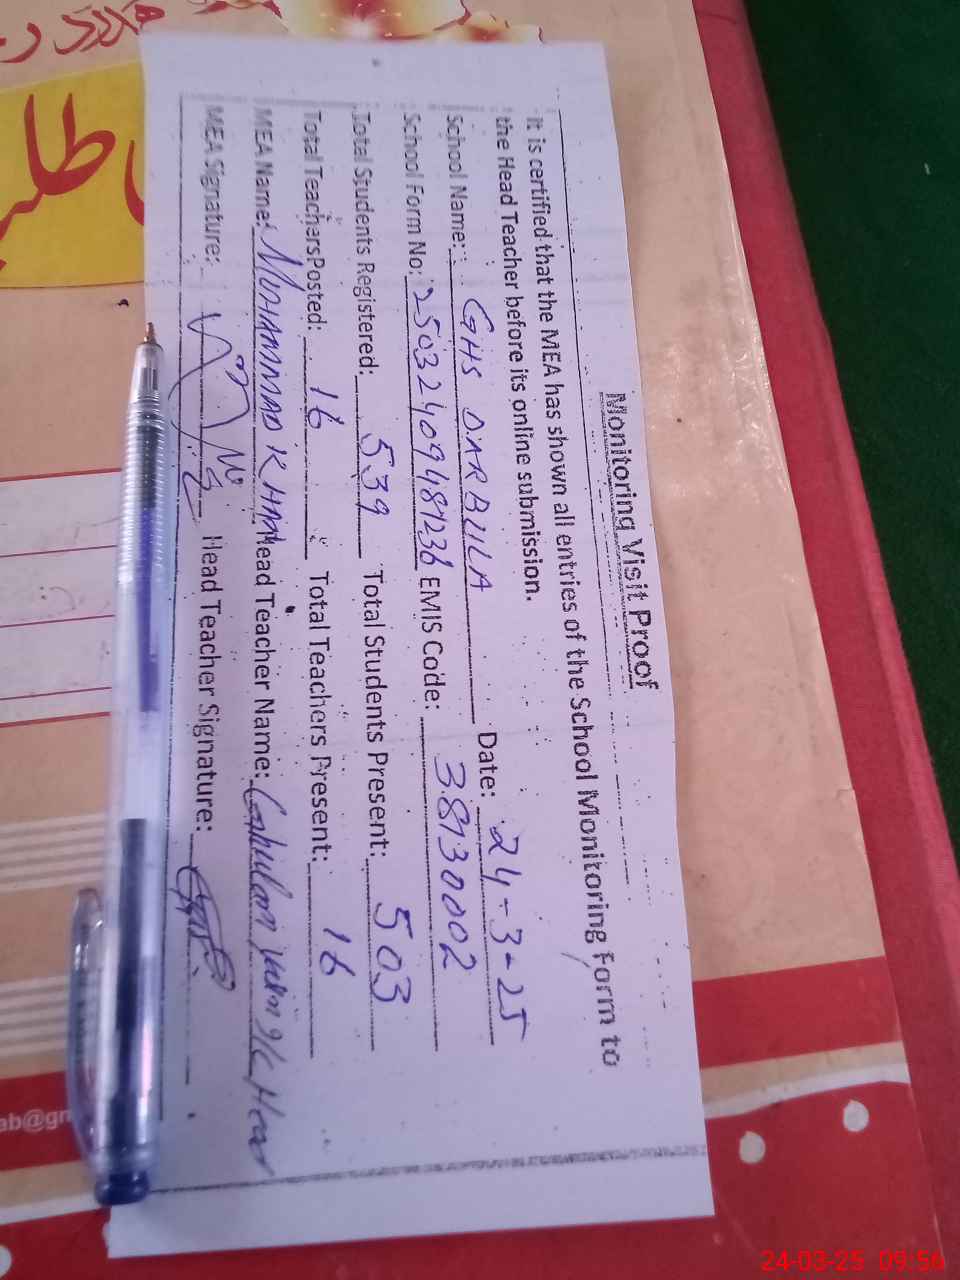 Monitoring Visit Proof
It is certified that the MEA has shown all entries of the School Monitoring Form to
the Head Teacher before its online submission.
School Name: GHS DARBULA Date: 24-3-25
School Form No: 2503240948123b EMIS Code: 38130002
Total Students Registered: 539 Total Students Present: 503
Total Teachers Posted: 16 Total Teachers Present: 16
MEA Name: MUHAMMAD K HAN Head Teacher Name: Ghulam
MEA Signature: Head Teacher Signature:
ab@gm
24-03-25 09:54